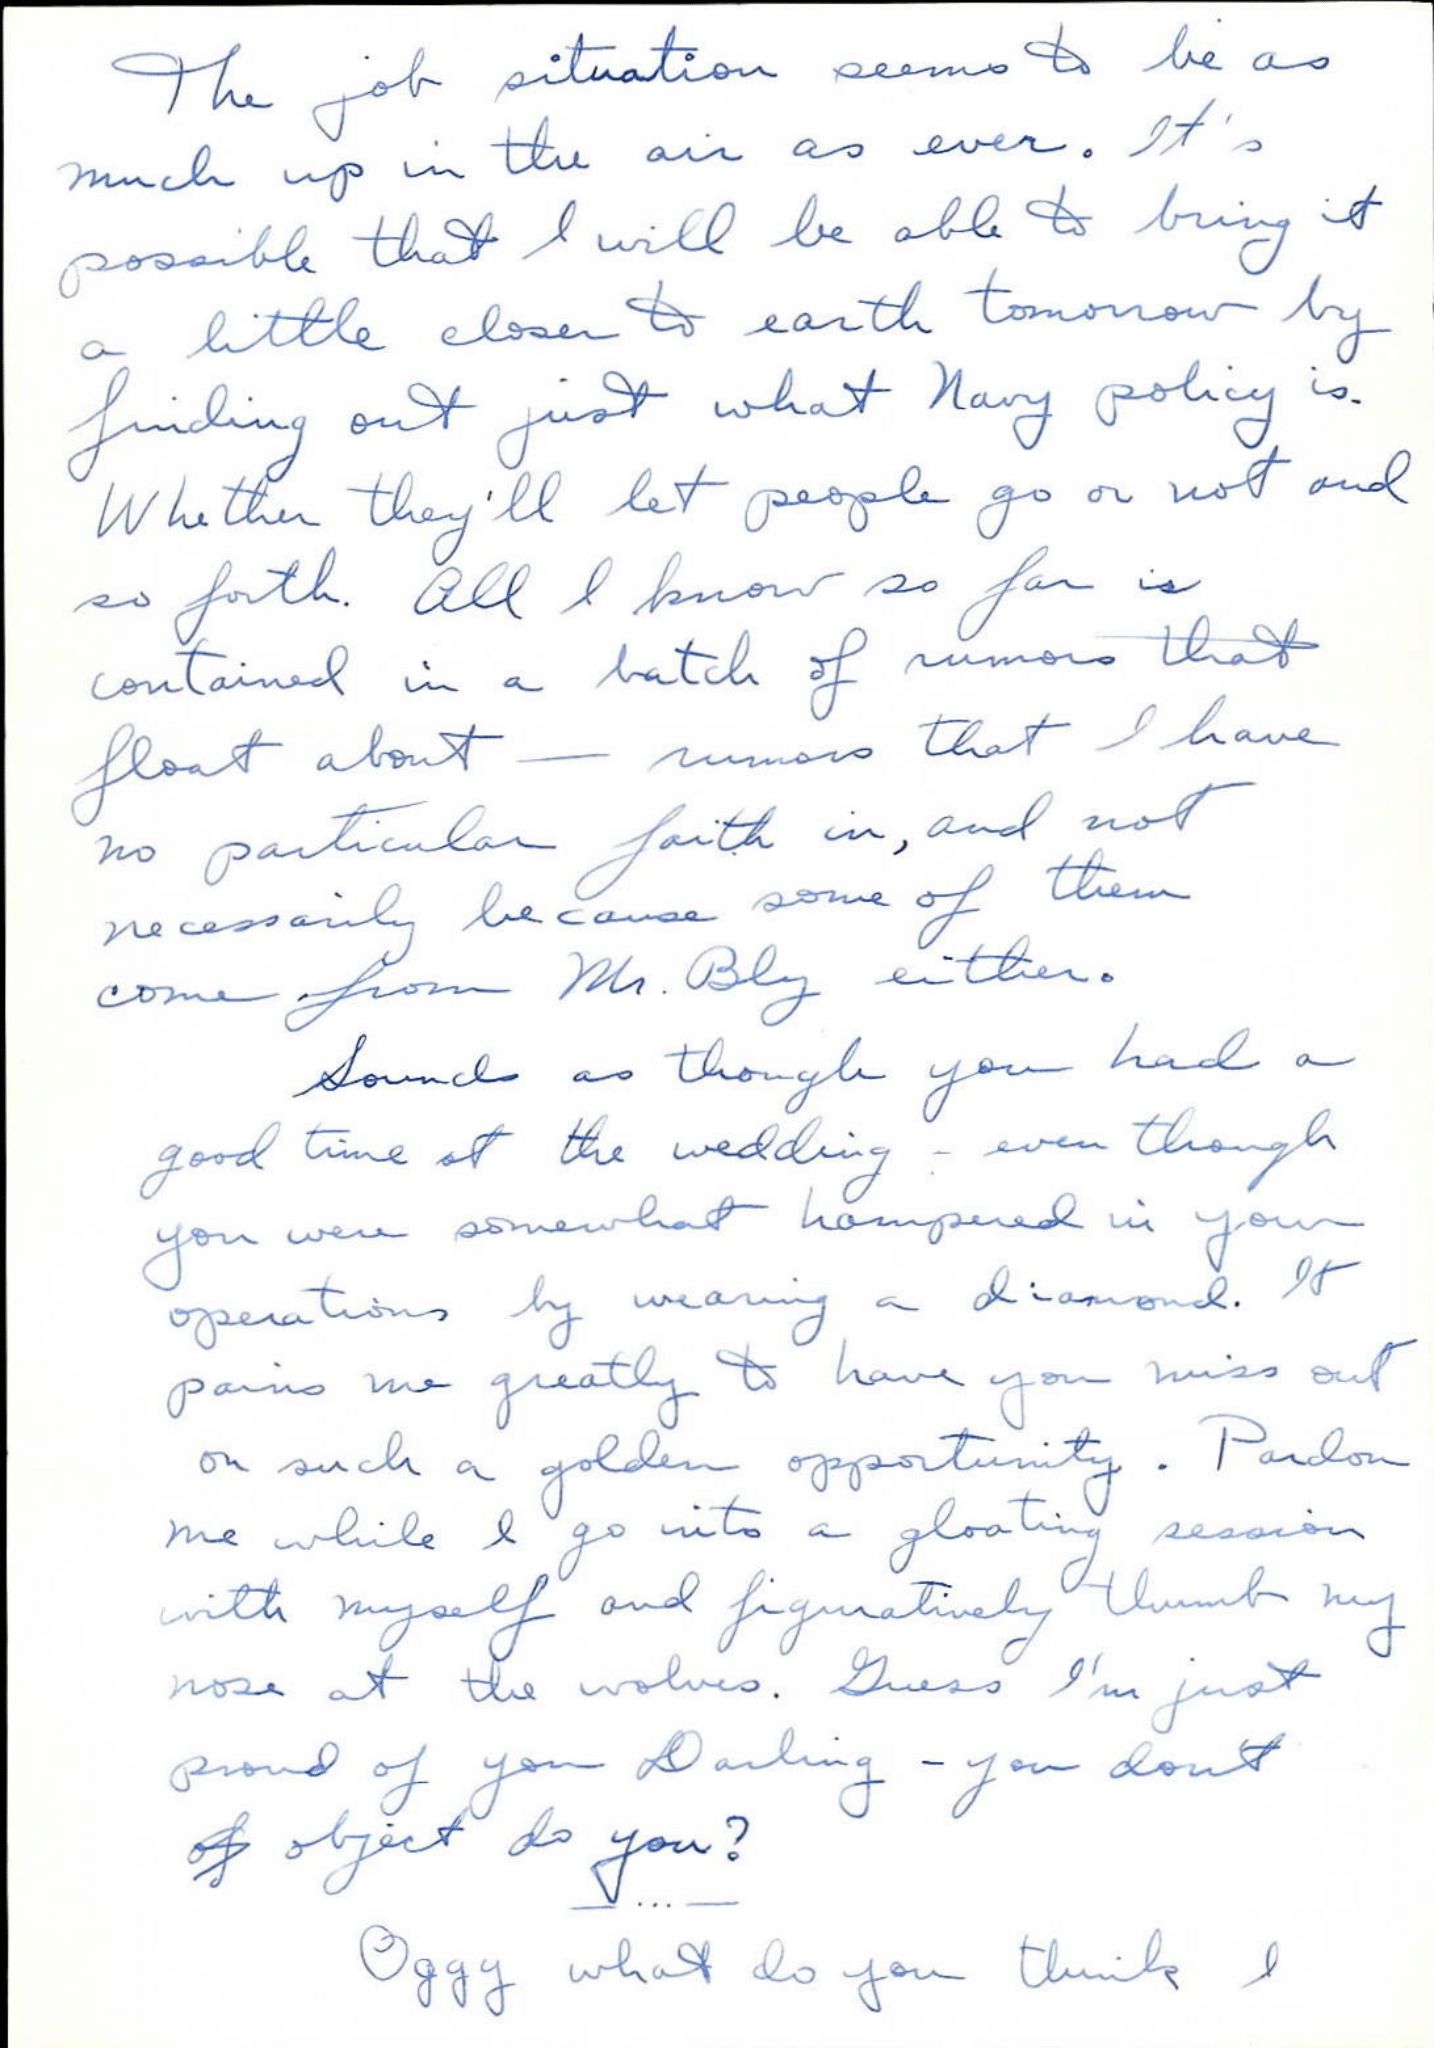 The job situation seems to be as
much up in the air as ever. It's
possible that I will be able to bring it
a little closer to earth tomorrow by
finding out just what Navy policy is.
Whether they'll let people go or not and
so forth. All I know so far is
contained in a batch of rumors that
float about — rumors that I have
no particular faith in, and not
necessarily because some of them
come from Mr. Bly either.
Sounds as though you had a
good time at the wedding - even though
you were somewhat hampered in your
operations by wearing a diamond. It
pains me greatly to have you miss out
on such a golden opportunity. Pardon
me while I go into a gloating session
with myself and figuratively thumb my
nose at the wolves. Guess I'm just
proud of you Darling - you don't
of object do you?
— ... —
Oggy what do you think I